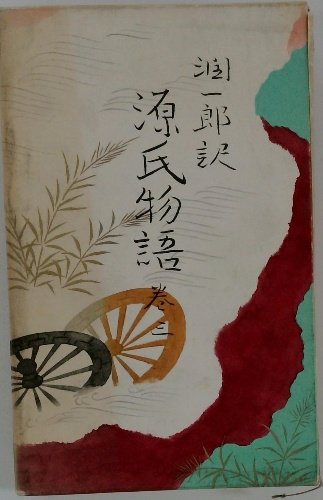 潤一郎訳
源氏物語
巻三